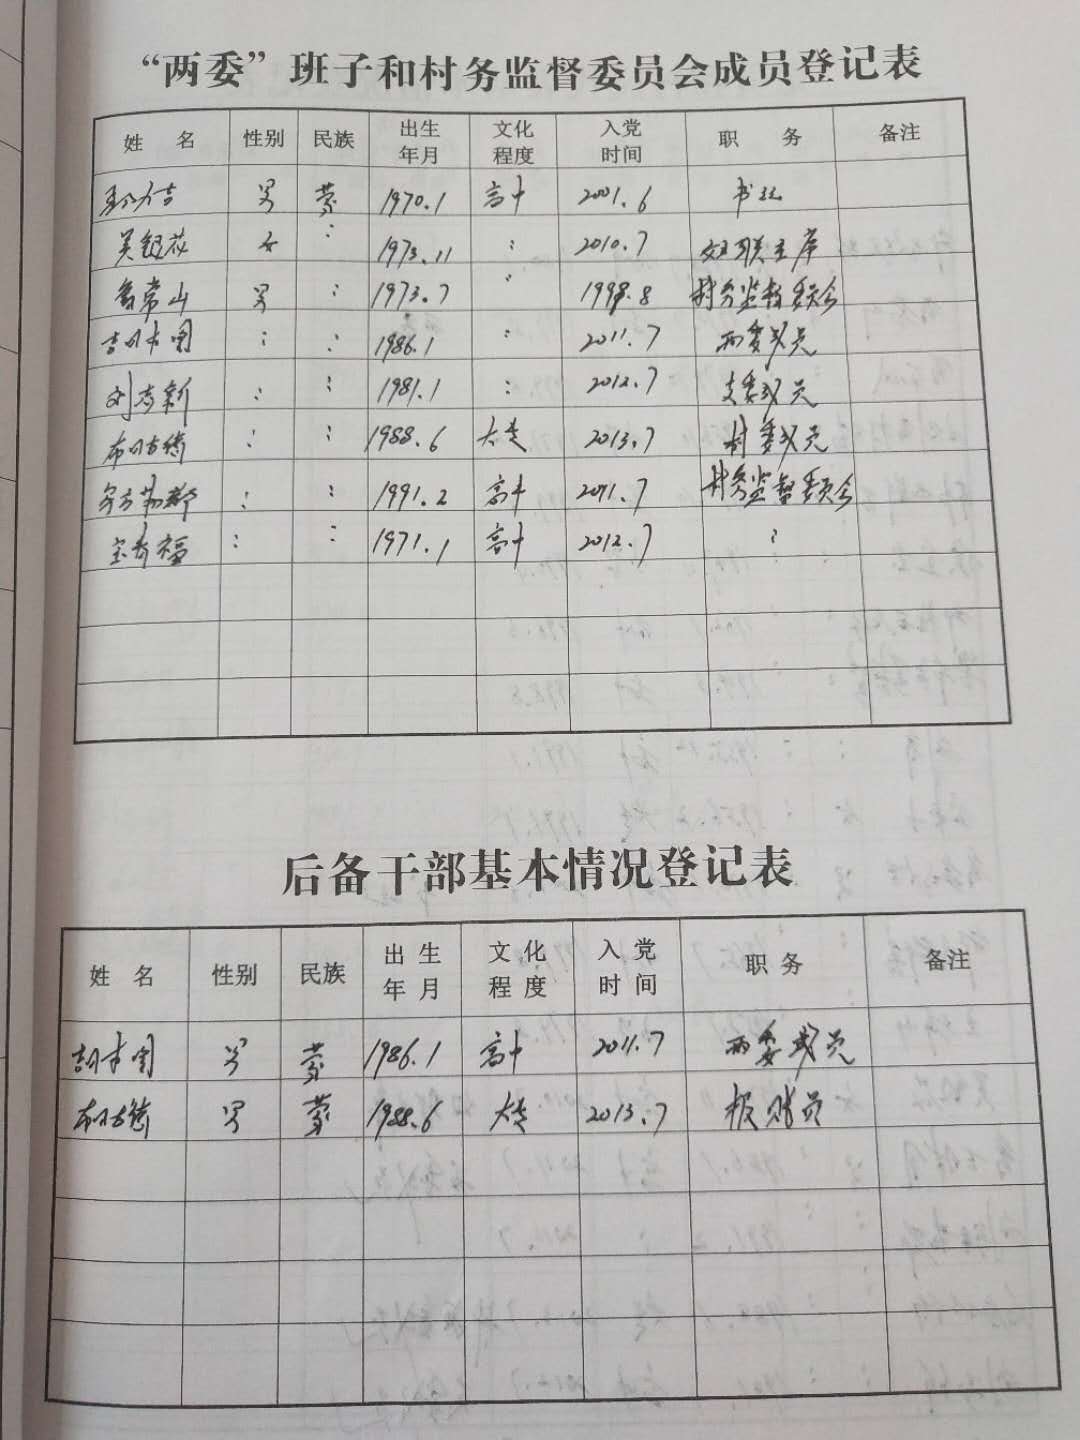 “两委”班子和村务监督委员会成员登记表
姓 名 性别 民族 出生年月 文化程度 入党时间 职 务 备注
男 蒙 1970.1 高中 2001.6 书记
吴银花 女 : 1973.11 : 2010.7 妇联主席
鲁常山 男 : 1973.7 " 1998.8 村务监督委员会
: : 1986.1 : 2011.7 两委成员
: : 1981.1 : 2012.7 支委成员
: : 1988.6 大专 2013.7 村委成员
: : 1991.2 高中 2011.7 村务监督委员会
: : 1971.1 高中 2012.7 :
后备干部基本情况登记表
姓 名 性别 民族 出生年月 文化程度 入党时间 职 务 备注
男 蒙 1986.1 高中 2011.7 两委成员
男 蒙 1988.6 大专 2013.7 报账员